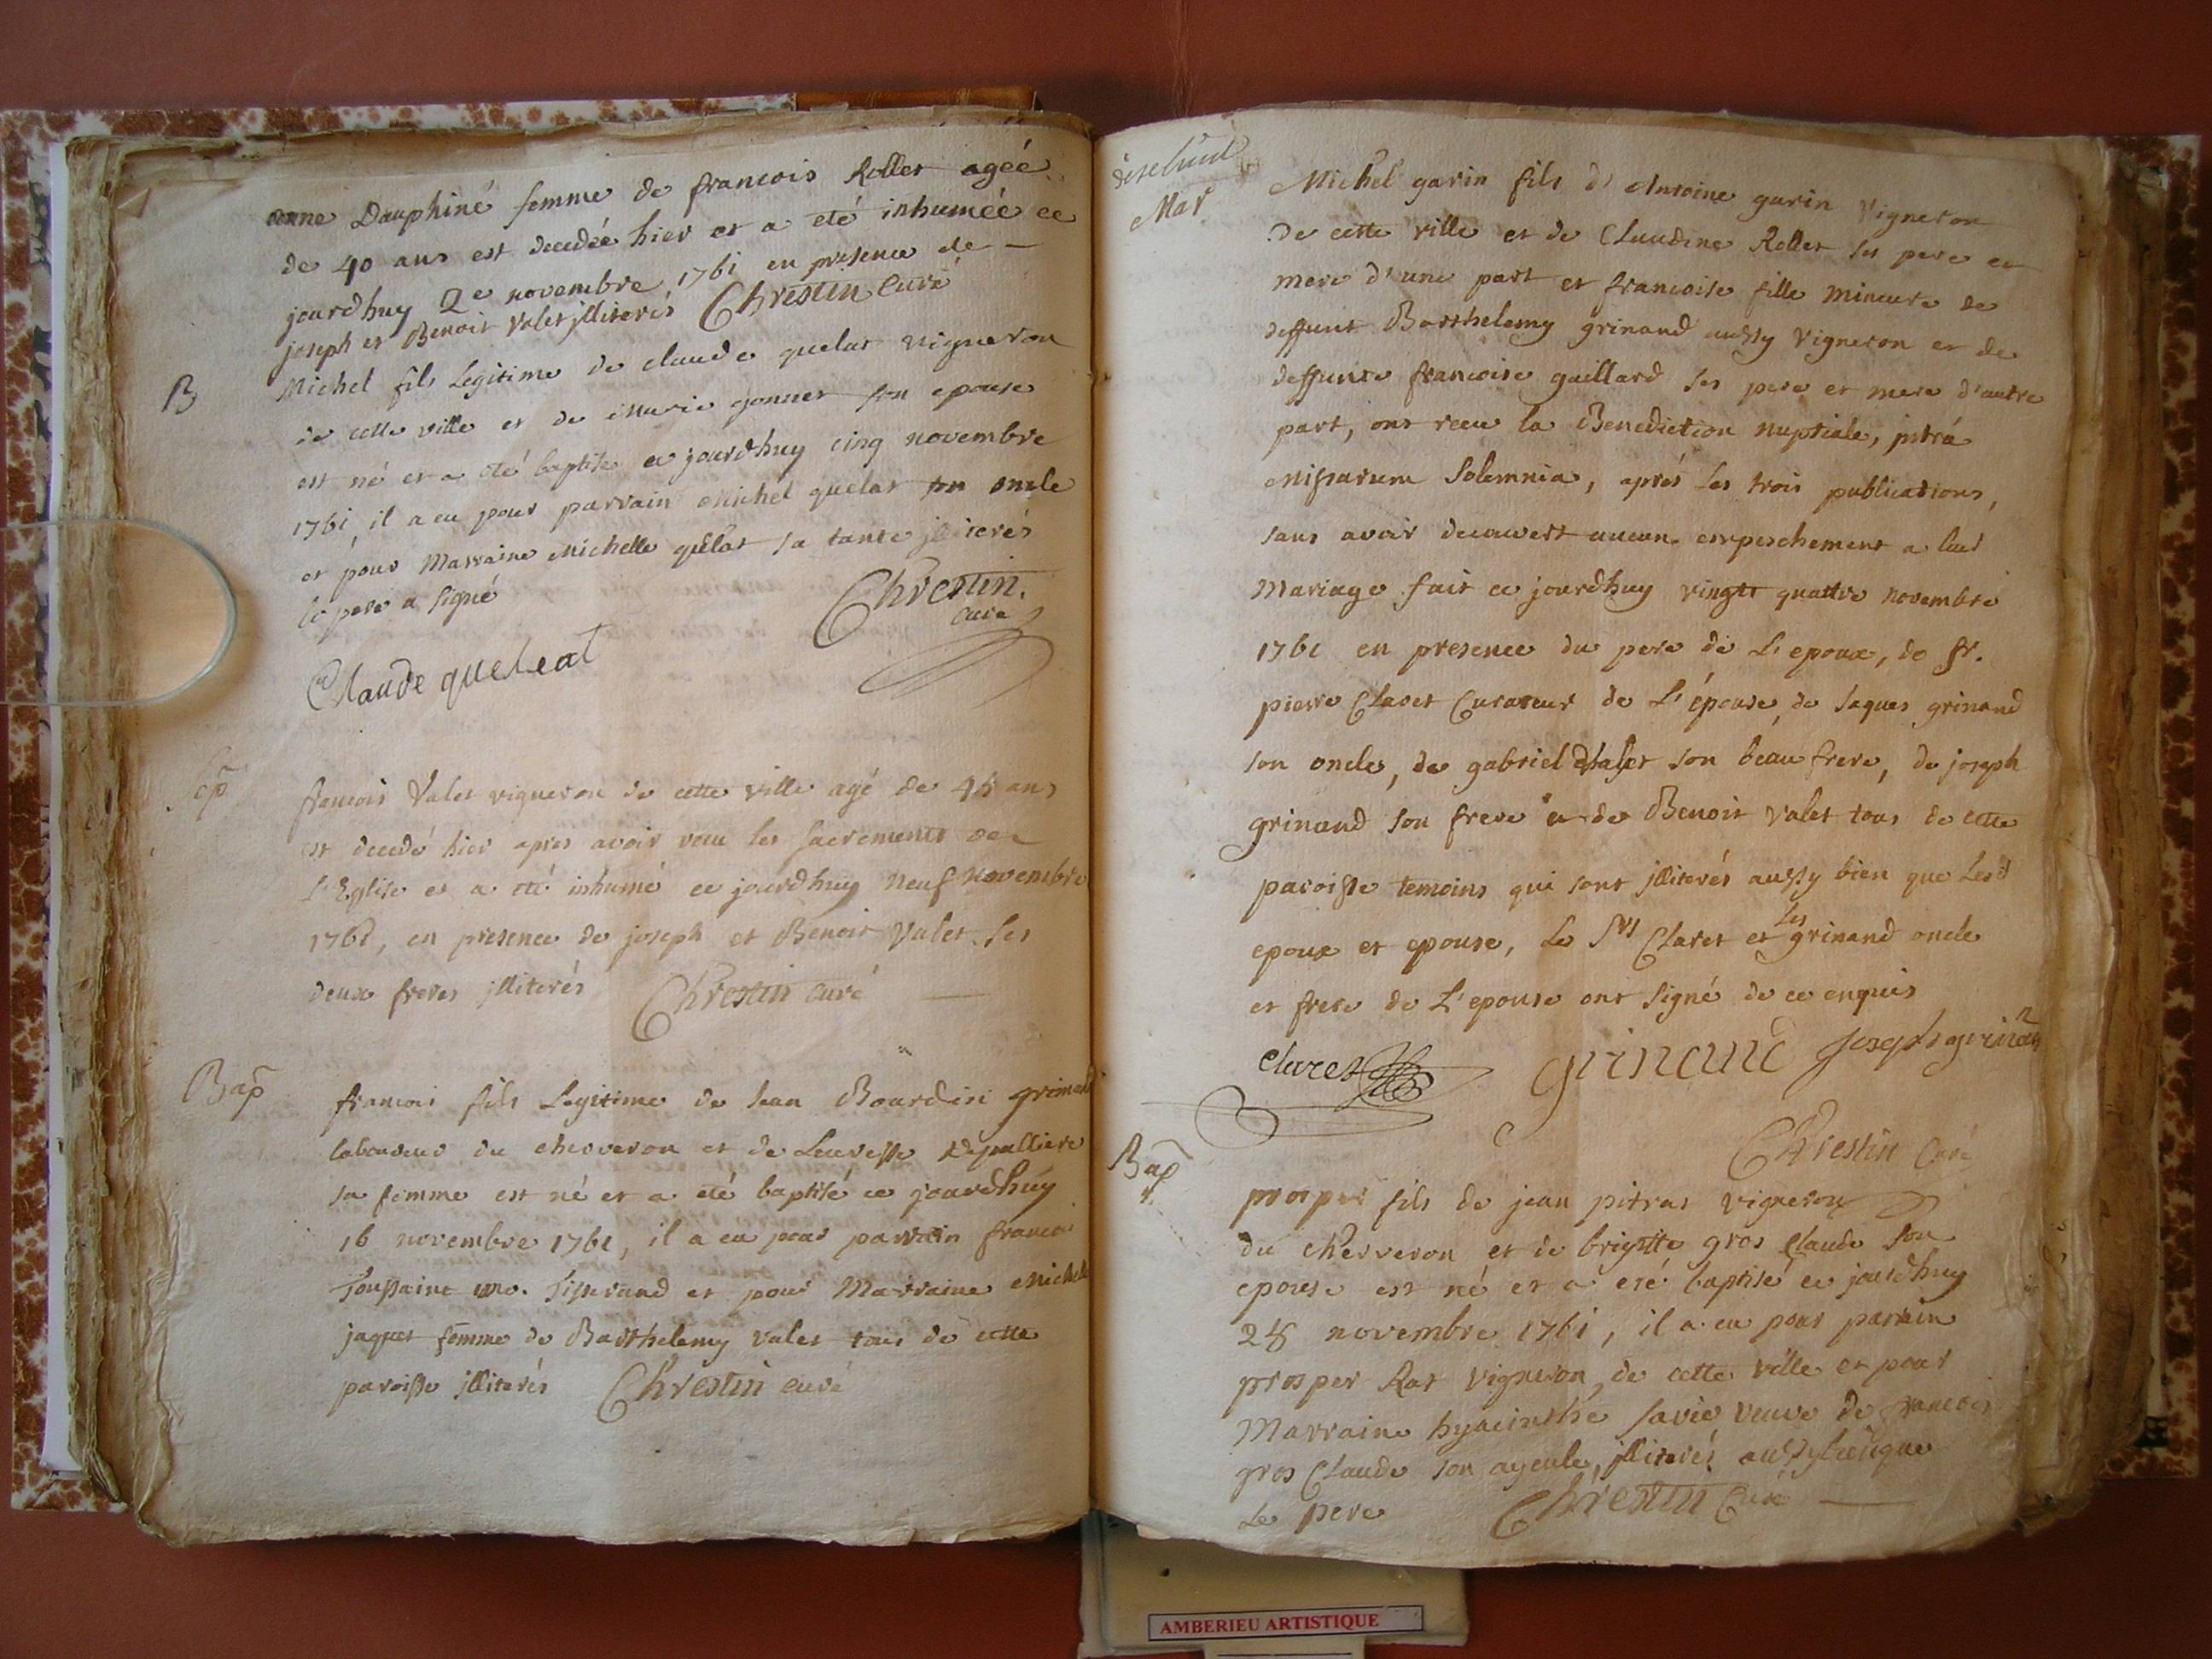 anne Dauphiné femme de francois Rollet agéé
de 40 ans est decedée hier et a eté inhuméé ce
jourdhuy 2e novembre 1761 en presence de —
joseph et Benoit Valet jlliterés Chrestin Curé
B
Michel fils Legitime de claude quelat vigneron
de cette ville et de Marie gonnet son epouse
est né et a eté baptise ce jourdhuy cinq novembre
1761, il a eu pour parrain Michel quelat son oncle
et pour Marraine Michelle quelat sa tante jlliterés
le pere a signé
Chrestin.
curé
Claude queleat
françois Valet vigneron de cette ville agé de 45 ans
est decedé hier apres avoir receu les sacrements de
L'Eglise et a eté inhumé ce jourdhuy neuf novembre
1761, en presence de joseph et Benoit Valet ses
deux freres jlliterés Chrestin curé —
Bap
francois fils Legitime de Jean Bourdin grinand
laboureur du cherveron et de
sa femme est né et a eté baptisé ce jourdhuy
16 novembre 1761, il a eu pour parrain francoi
Toussaint Tisserand et pour Marraine Michelle
jaquet femme de Barthelemy valet tous de cette
paroisse jlliterés Chrestin curé
Mar
Michel garin fils d'Antoine garin Vigneron
De cette ville et de Claudine Rollet ses pere et
mere d'une part et francoise fille mineure de
deffunt Barthelemy grinand aussy Vigneron et de
deffunte francoise gaillard ses pere et mere d'autre
part, ont receu la Benediction nuptiale, jntrá
Missarum Solemnia, aprés Les trois publications,
sans avoir decouvert aucun empeschement a leur
Mariage fait ce jourdhuy vingt quattre novembre
1761 en presence du pere de L'epoux, de sr.
pierre Claret Curateur de L'épouse, de Jaques grinand
son oncle, de gabriel son beau frere, de joseph
grinand son frere et de Benoit Valet tous de cette
paroisse temoins qui sont jlliterés aussy bien que Lesd
epoux et epouse, Le Sr Claret et les grinand oncle
et frere de L'epouse ont signé de ce enquis
Claret grinand Joseph grinan
Chrestin Curé
Bap
prosper fils de jean pitras vigneron
du cherveron et de brigitte gros Claude son
epouse est né et a eté baptisé ce jourdhuy
28 novembre 1761, il a eu pour parrain
prosper Rat vigneron de cette ville et pour
Marraine hyacinthe savié veuve de francois
gros Claude son ayeule, jlliterés aussy bien que
Le pere Chrestin Curé —
AMBERIEU ARTISTIQUE